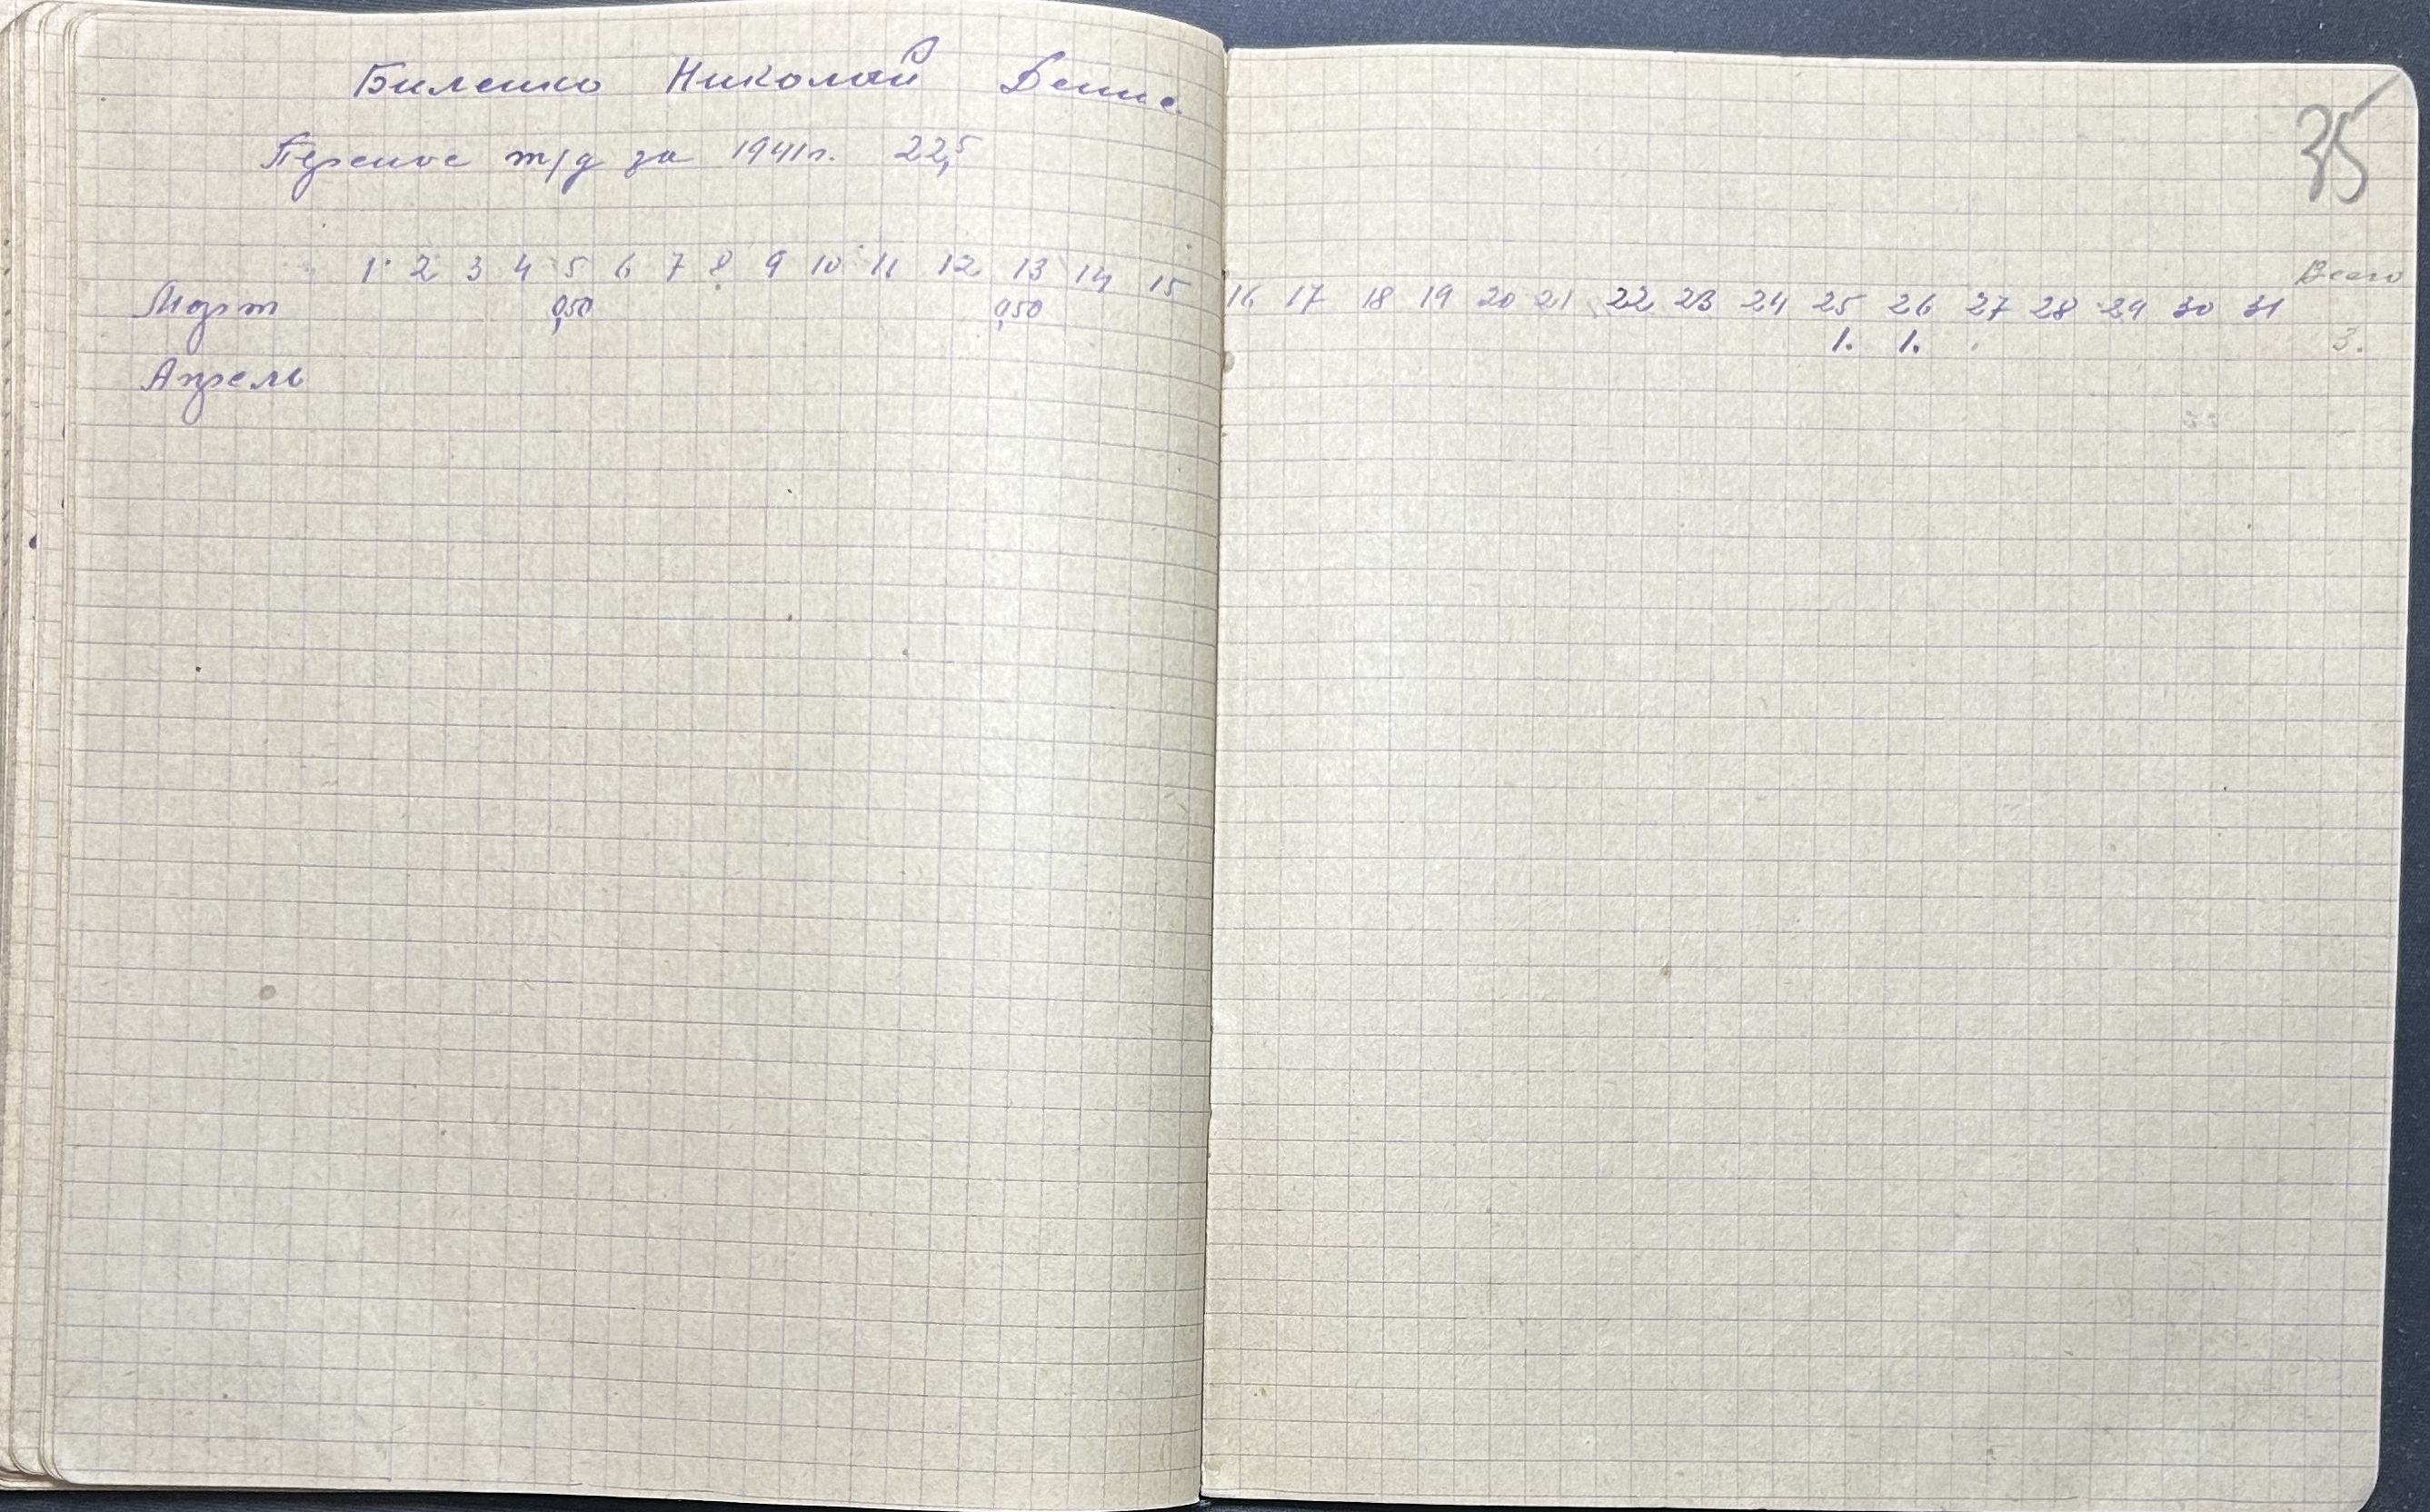 Биленко Николай Денис.
Перенос т/д за 1941г. 22,5
35
1 2 3 4 5 6 7 8 9 10 11 12 13 14 15 16 17 18 19 20 21 22 23 24 25 26 27 28 29 30 31 Всего
Март 0,50 0,50 1. 1. 3.
Апрель